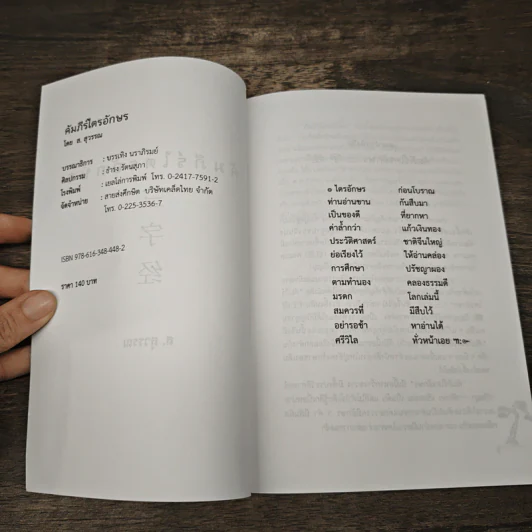 คัมภีร์ไตรอักษร
โดย ส. สุวรรณ
บรรณาธิการ : บรรเทิง นราภิรมย์
ศิลปกรรม : ธำรง รัตนสุภา
โรงพิมพ์ : เยลโล่การพิมพ์ โทร. 0-2417-7591-2
จัดจำหน่าย : สายส่งศึกษิต บริษัทเคล็ดไทย จำกัด
โทร. 0-225-3536-7
ISBN 978-616-348-448-2
ราคา 140 บาท
๏ ไตรอักษร ก่อนโบราณ
ท่านอ่านขาน กันสืบมา
เป็นของดี ที่ยากหา
ค่าล้ำกว่า แก้วเงินทอง
ประวัติศาสตร์ ชาติจีนใหญ่
ย่อเรียงไว้ ให้อ่านคล่อง
การศึกษา ปรัชญาผอง
ตามทำนอง คลองธรรมดี
มรดก โลกเล่มนี้
สมควรที่ มีสืบไว้
อย่ารอช้า หาอ่านได้
ศรีวิไล ทั่วหน้าเอย ฯ๛